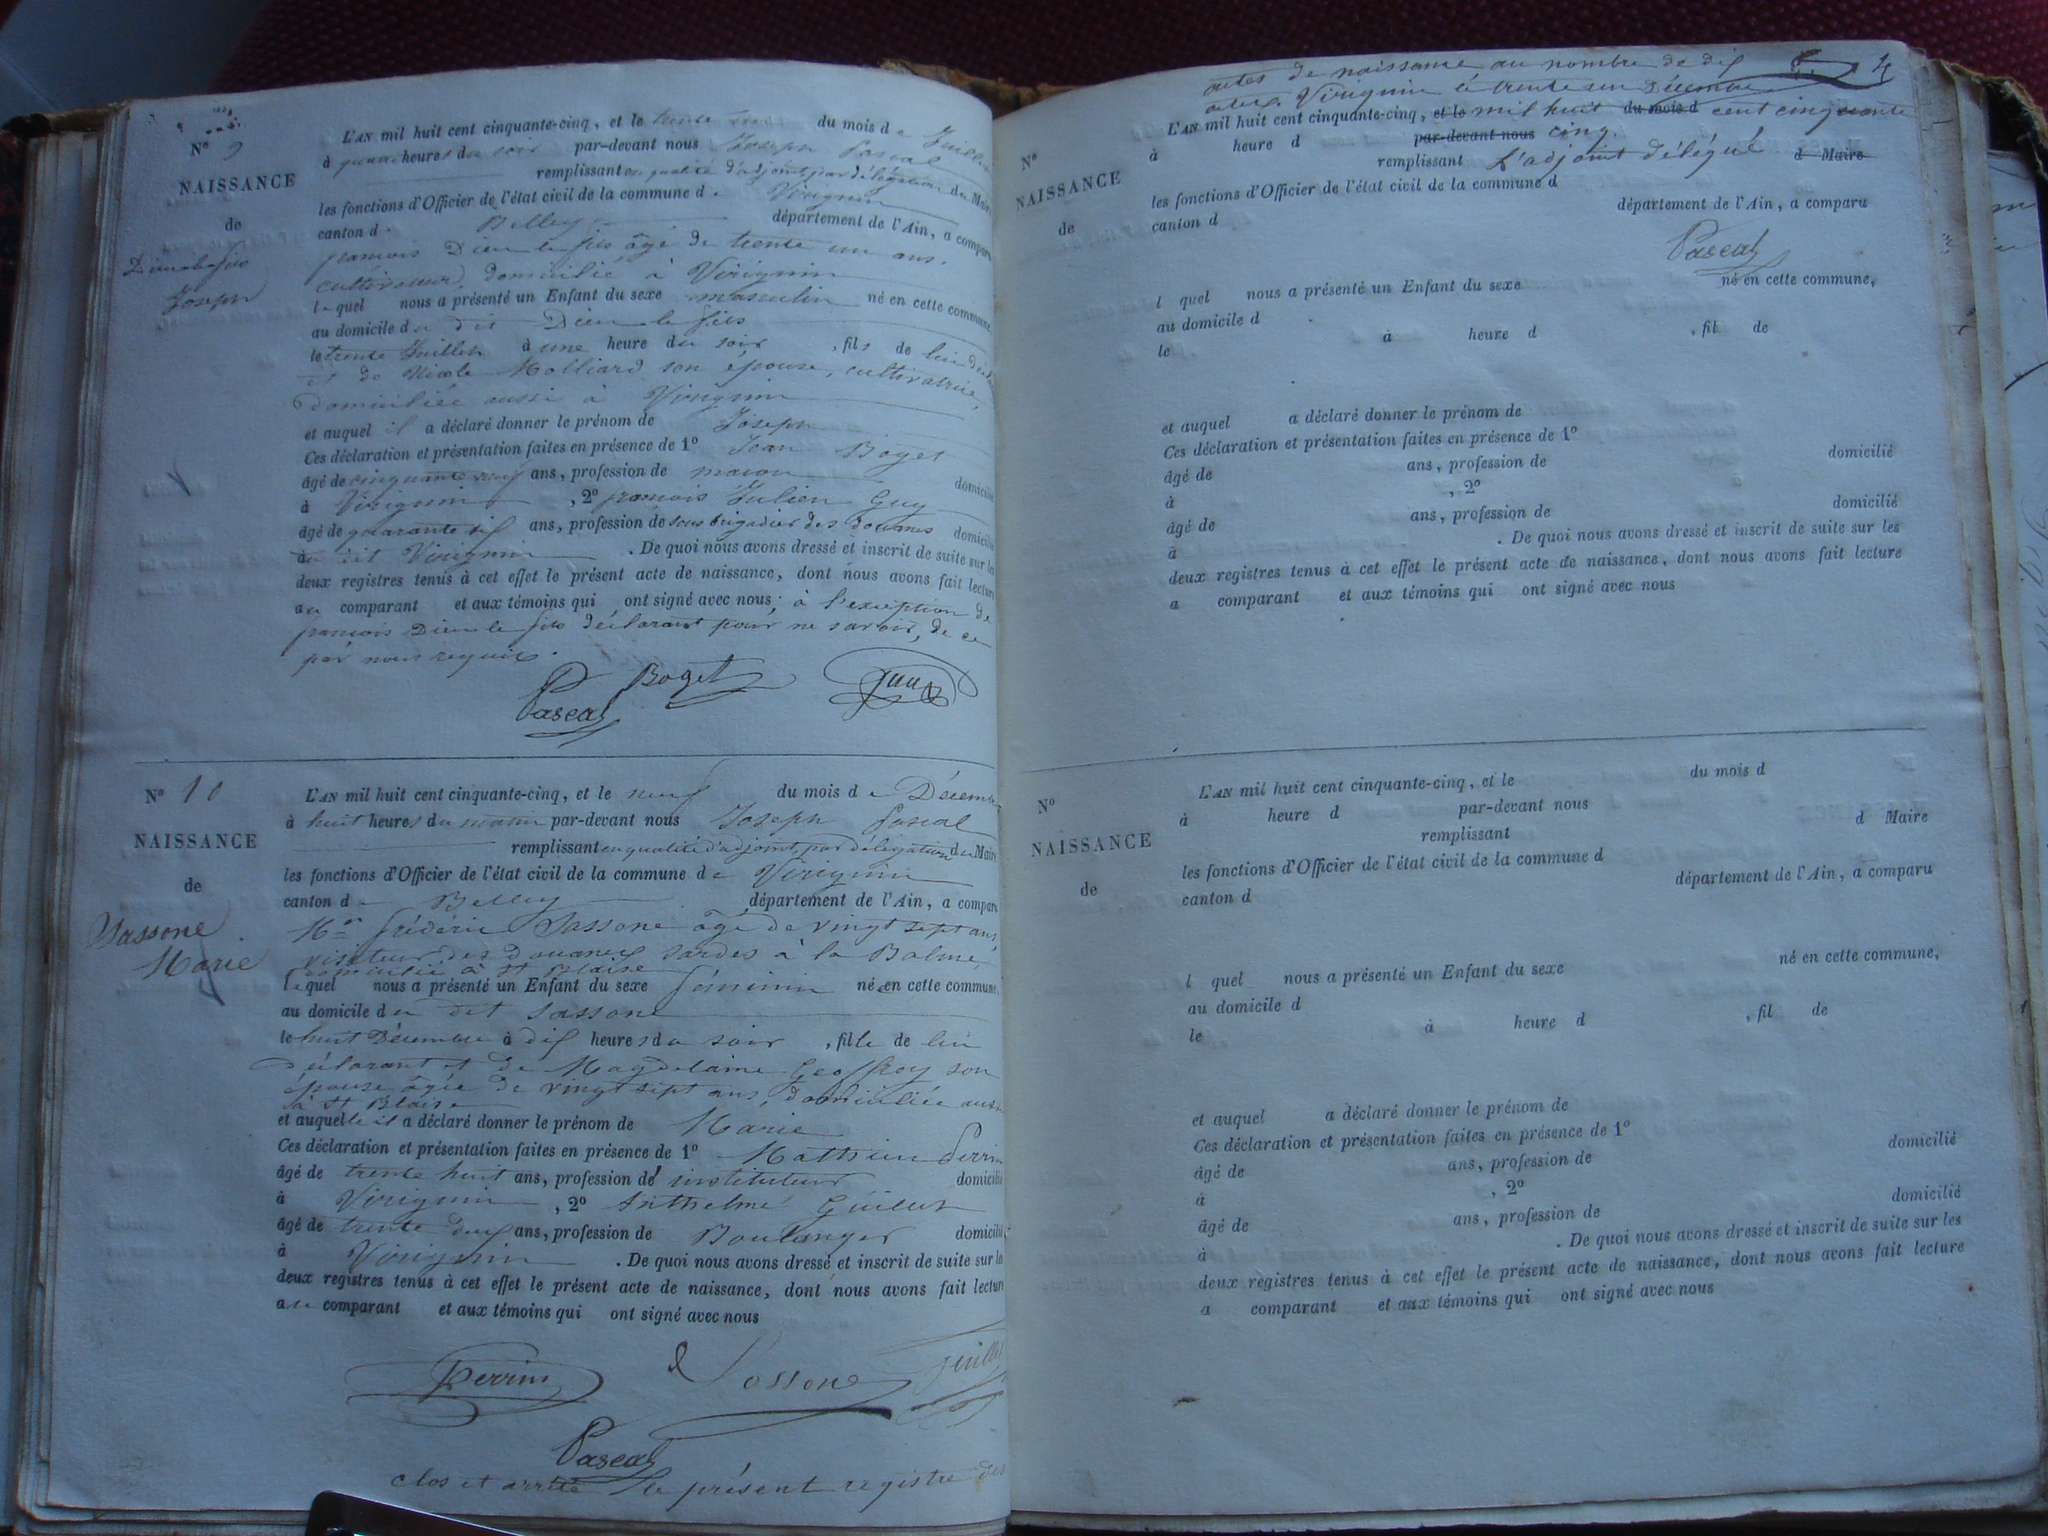 Nº 9
NAISSANCE
de
Dieulefils
Joseph
L'AN mil huit cent cinquante-cinq, et le trente du mois de Juillet
à heures du soir par-devant nous Joseph Pascal
remplissant en qualité d'adjoint, par délégation du Maire
les fonctions d'Officier de l'état civil de la commune de Virignin
canton de Belley département de l'Ain, a comparu
françois Dieu le fils âgé de trente un ans.
cultivateur, domicilié à Virignin
lequel nous a présenté un Enfant du sexe masculin né en cette commune,
au domicile du dit Dieu le fils
le trente Juillet à une heure du soir, fils de lui
et de Nicole Molliard son épouse, cultivatrice,
domiciliée aussi à Virignin
et auquel il a déclaré donner le prénom de Joseph
Ces déclaration et présentation faites en présence de 1º Jean Boget
âgé de cinquante neuf ans, profession de maçon domicilié
à Virignin, 2º françois Julien Guy
âgé de quarante six ans, profession de sous brigadier des douanes domicilié
au dit Virignin. De quoi nous avons dressé et inscrit de suite sur les
deux registres tenus à cet effet le présent acte de naissance, dont nous avons fait lecture
au comparant et aux témoins qui ont signé avec nous; à l'exception de
françois Dieu le fils déclarant pour ne savoir, de ce
par nous requis.
Boget
Pascal
Nº 10
NAISSANCE
de
Sassone
Marie
L'AN mil huit cent cinquante-cinq, et le neuf du mois de Décembre
à huit heures du matin par-devant nous Joseph Pascal
remplissant en qualité d'adjoint, par délégation du Maire
les fonctions d'Officier de l'état civil de la commune de Virignin
canton de Belley département de l'Ain, a comparu
Mr frédéric Sassone âgé de vingt sept ans,
visiteur des douanes sardes à la Balme,
domicilié à St Blaise
lequel nous a présenté un Enfant du sexe féminin née en cette commune,
au domicile du dit Sassone
le huit Décembre à dix heures du soir, fille de lui
déclarant et de Magdelaine Geoffroy son
épouse âgée de vingt sept ans, domiciliée aussi
à St Blaise
et auquelle il a déclaré donner le prénom de Marie
Ces déclaration et présentation faites en présence de 1º Mathieu Perrin
âgé de trente huit ans, profession de instituteur domicilié
à Virignin, 2º Anthelme Guillet
âgé de trente ans, profession de Boulanger domicilié
à Virignin. De quoi nous avons dressé et inscrit de suite sur les
deux registres tenus à cet effet le présent acte de naissance, dont nous avons fait lecture
au comparant et aux témoins qui ont signé avec nous
Perrin Sassone Guillet
Pascal
clos et arrêté le présent registre des
4
actes de naissance au nombre de dix
actes. Virignin le trente un Décembre
L'AN mil huit cent cinquante-cinq, et le mil huit du mois d cent cinquante
Nº
à heure d par-devant nous cinq.
remplissant L'adjoint délégué d Maire
NAISSANCE
les fonctions d'Officier de l'état civil de la commune d
de
canton d département de l'Ain, a comparu
Pascal
l quel nous a présenté un Enfant du sexe né en cette commune,
au domicile d
le à heure d , fil de
et auquel a déclaré donner le prénom de
Ces déclaration et présentation faites en présence de 1º
âgé de ans, profession de domicilié
à , 2º
âgé de ans, profession de domicilié
à . De quoi nous avons dressé et inscrit de suite sur les
deux registres tenus à cet effet le présent acte de naissance, dont nous avons fait lecture
a comparant et aux témoins qui ont signé avec nous
Nº
NAISSANCE
de
L'AN mil huit cent cinquante-cinq, et le du mois d
à heure d par-devant nous
remplissant d Maire
les fonctions d'Officier de l'état civil de la commune d
canton d département de l'Ain, a comparu
l quel nous a présenté un Enfant du sexe né en cette commune,
au domicile d
le à heure d , fil de
et auquel a déclaré donner le prénom de
Ces déclaration et présentation faites en présence de 1º
âgé de ans, profession de domicilié
à , 2º
âgé de ans, profession de domicilié
à . De quoi nous avons dressé et inscrit de suite sur les
deux registres tenus à cet effet le présent acte de naissance, dont nous avons fait lecture
a comparant et aux témoins qui ont signé avec nous